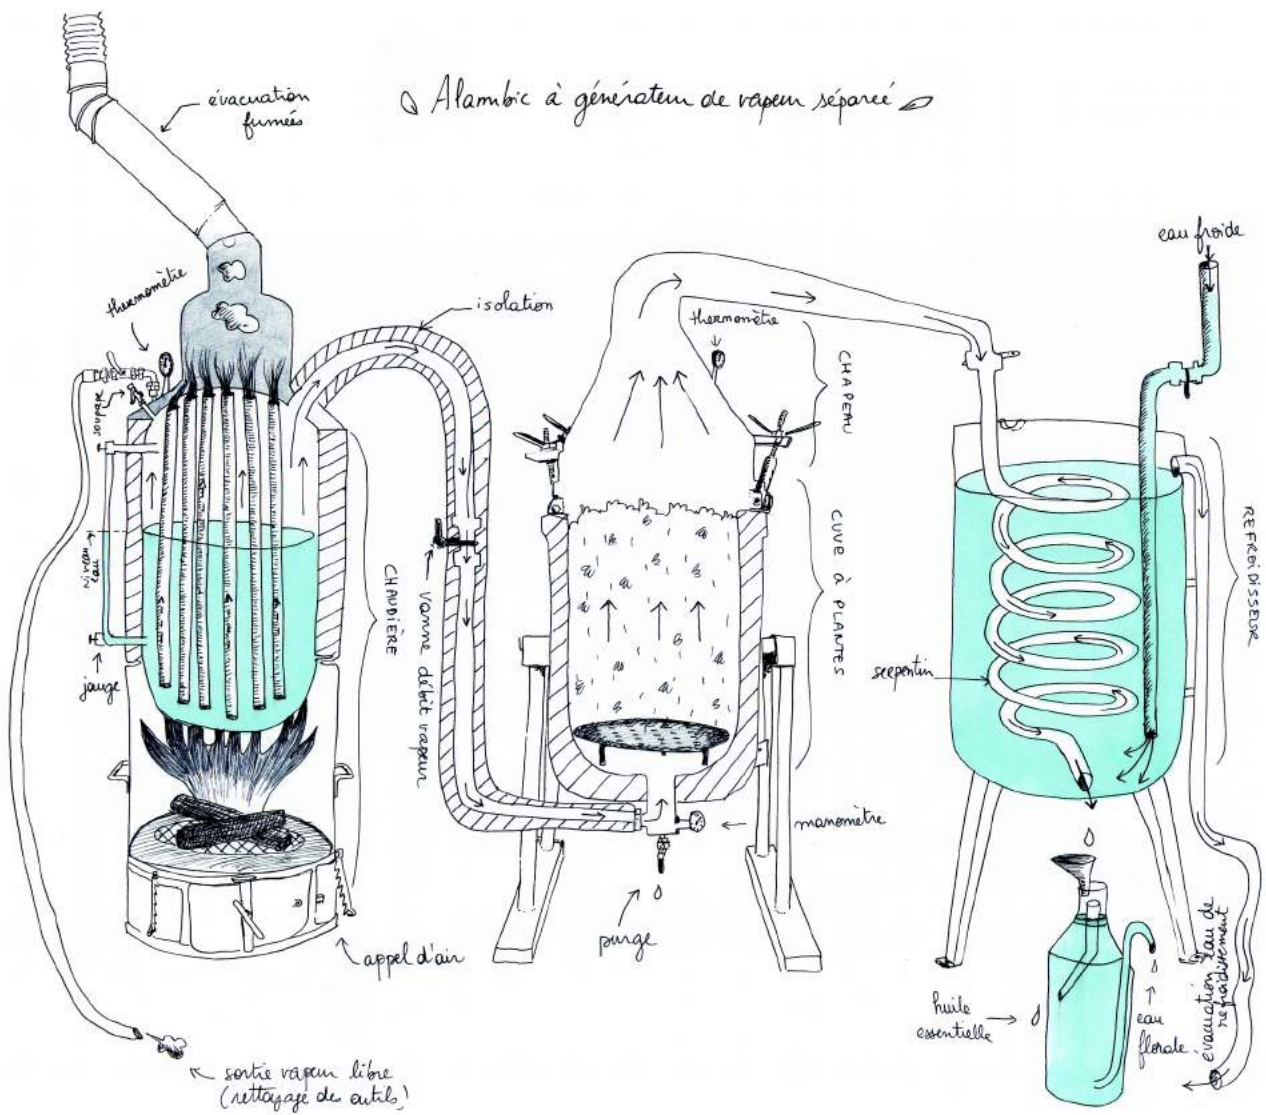 Alambic à générateur de vapeur séparé
évacuation
fumées
thermomètre
soupape
niveau
eau
jauge
CHAUDIÈRE
isolation
vanne débit vapeur
appel d'air
sortie vapeur libre
(nettoyage des outils)
thermomètre
CHAPEAU
CUVE à PLANTES
manomètre
purge
eau froide
REFROIDISSEUR
serpentin
huile
essentielle
eau
florale
évacuation eau de
refroidissement